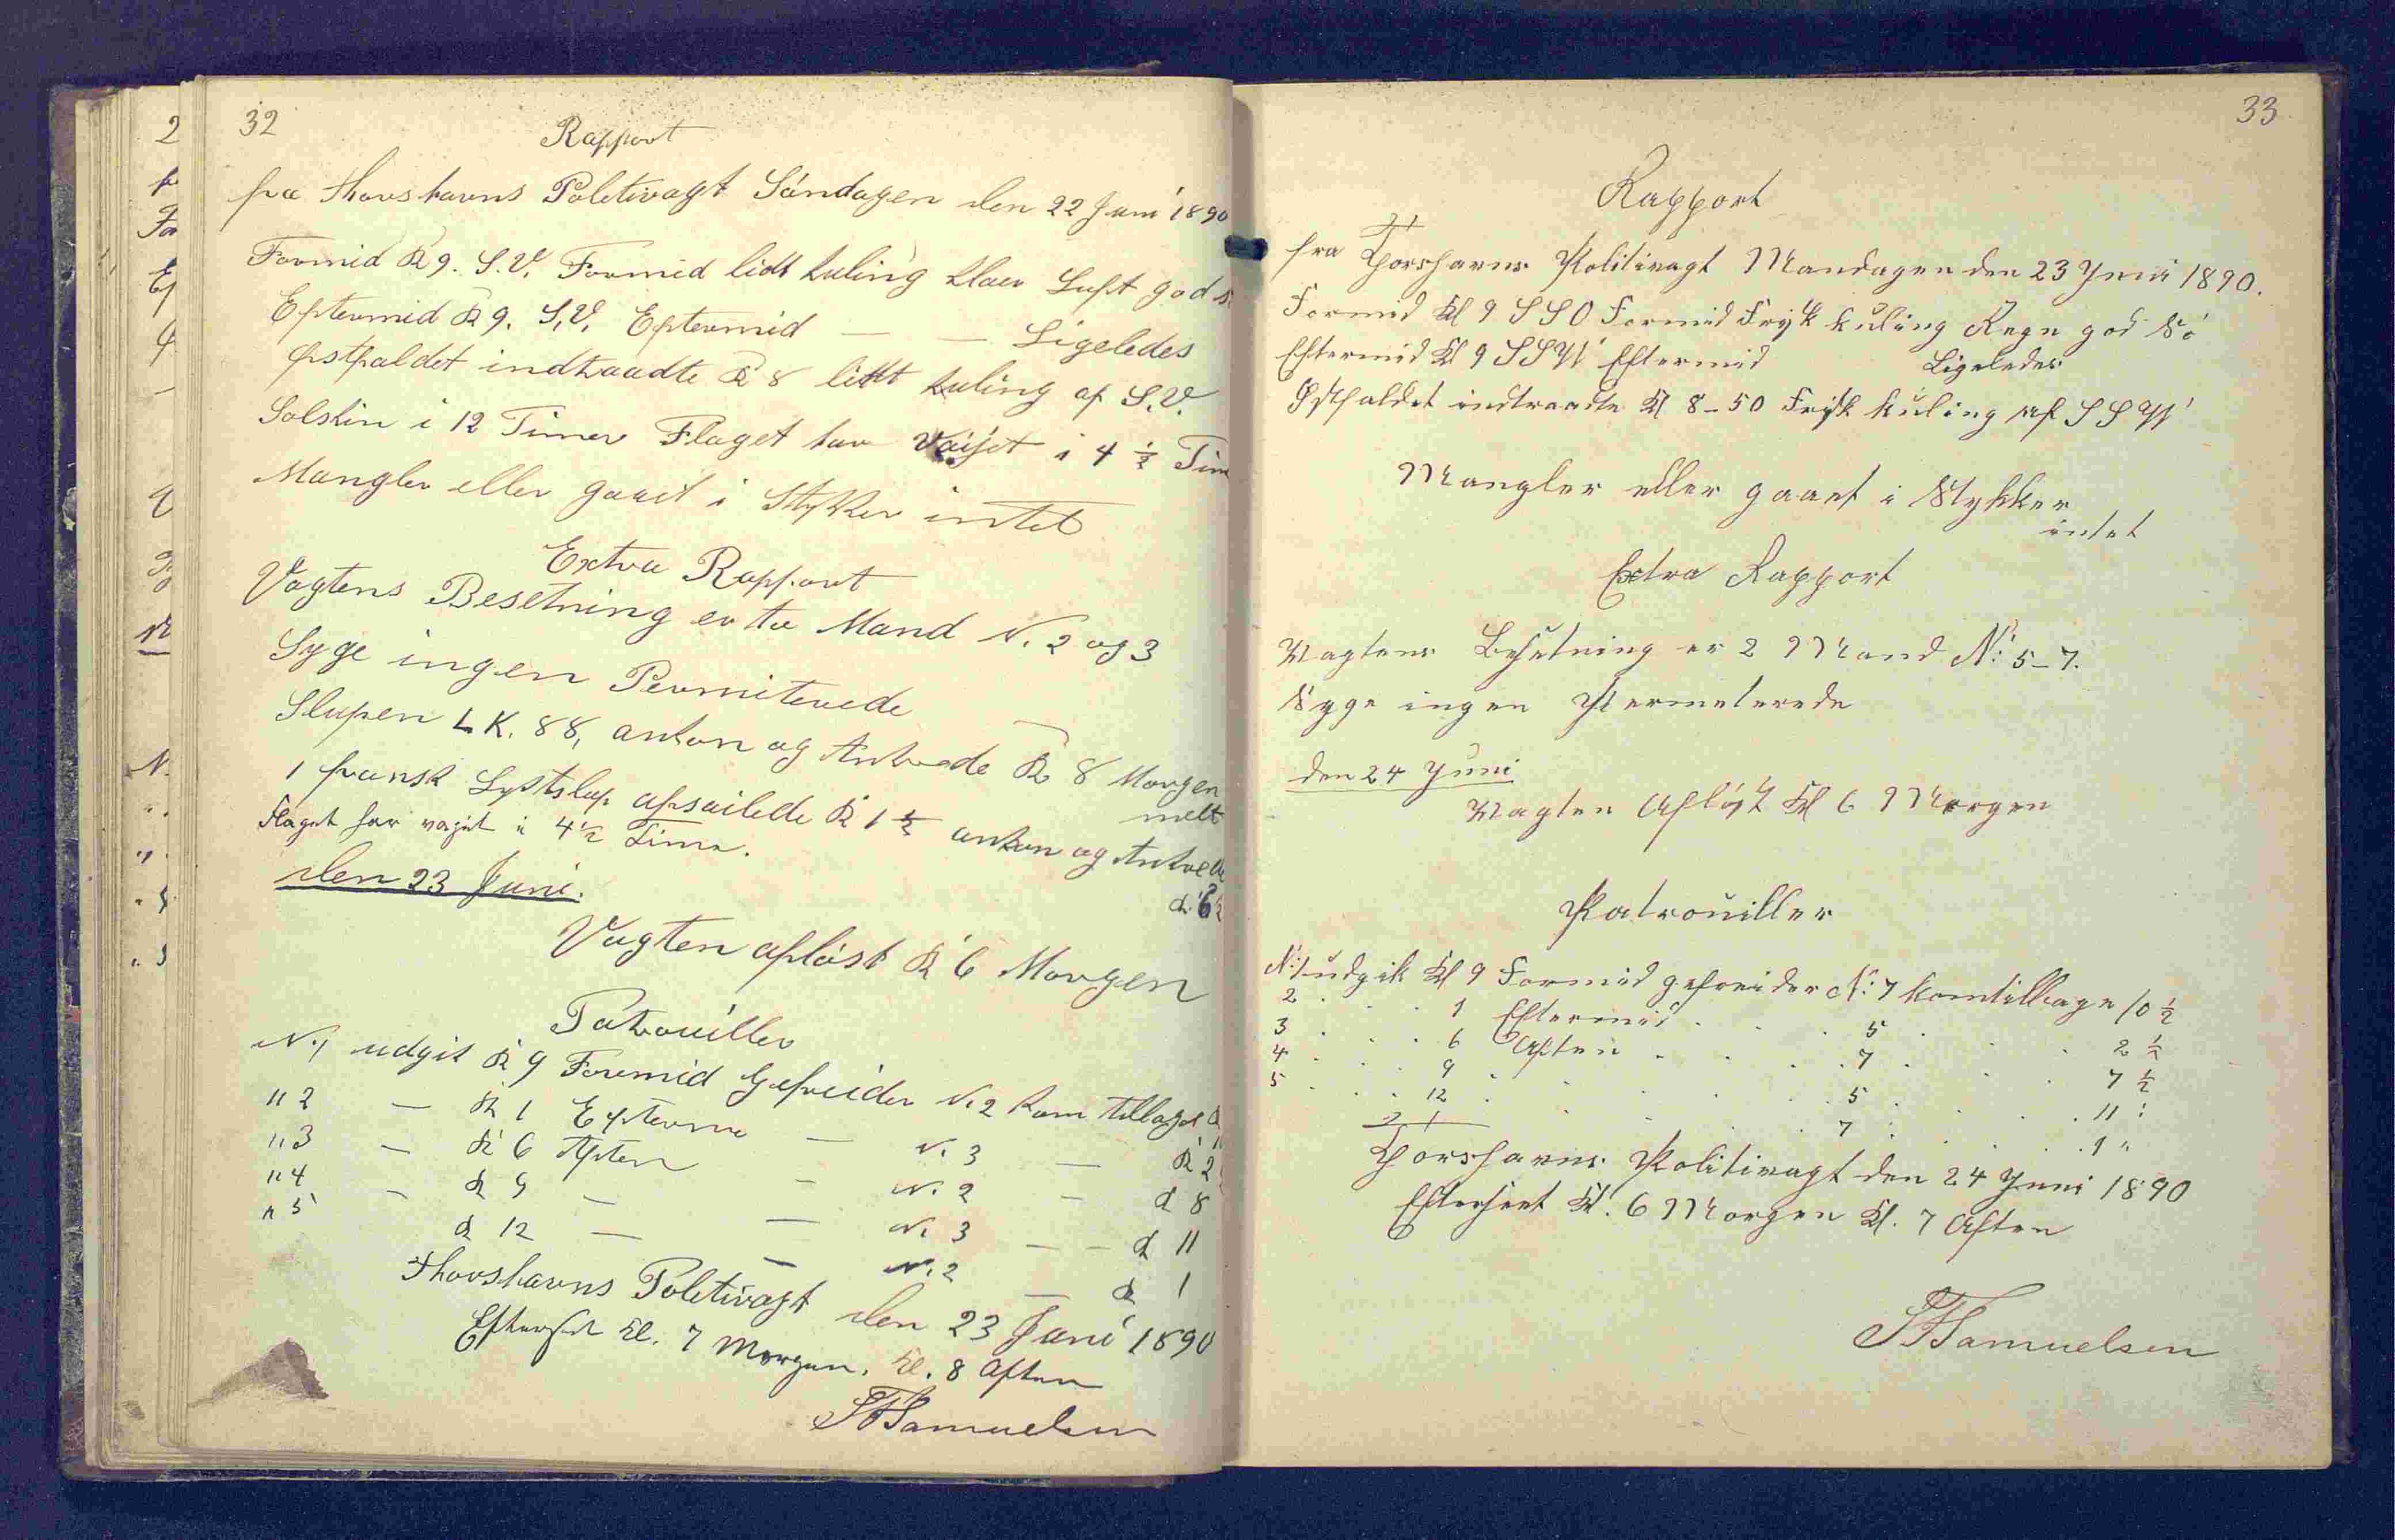 32
Rapport
fra Thorshavns Politivagt Søndagen den 22 Juni 1890
Formid Kl 9. S.V. Formid lidt kuling klaer Luft god
Eftermid Kl 9. S.V. Eftermid — — Ligeledes
Østfaldet indtraadte Kl 8 lidt kuling af S.V.
Solskin i 12 Timer Flaget har Vaijet i 4 ½ Tim
Mangler eller gaaet i Stykker intet
Extra Rapport
Vagtens Besetning er to Mand N. 2 og 3
Syge ingen Permiterede —
Slupen L.K. 88, ankom og Ankrede Kl 8 Morgen
melt
1 fransk Lystslup afsailede Kl 1 ½ ankom og Ankrede
Flaget har vajet i 4½ Time.
Kl 6½
den 23 Juni.
Vagten afløst Kl 6 Morgen
Patrouiller
N. 1 udgik Kl 9 Formid Gefreider N. 2 kom tilbage Kl
" 2 — Kl 1 Efterm — N. 3 — Kl 2
" 3 — Kl 6 Aften — N. 2 — Kl 8
" 4 — Kl 9 — — N. 3 — — Kl 11
" 5 Kl 12 — — N. 2 — Kl 1
Thorshavns Politivagt den 23 Juni 1890
Efterset Kl. 7 Morgen. Kl. 8 Aften
Samuelsen
33
Rapport
fra Thorshavns Politivagt Mandagen den 23 Juni 1890.
Formid Kl 9 SSO Formid Frisk kuling Regn god Sö
Eftermid Kl 9 SSW Eftermid Ligeledes
Østfaldet indtraadte Kl 8-50 Frisk kuling af SSW
Mangler eller gaaet i Stykker
intet
Extra Rapport
Vagtens Besetning er 2 Mand N: 5-7.
Syge ingen Permeterede
den 24 Juni
Vagten Afløst Kl 6 Morgen
Patrouiller
N: 1 udgik Kl 9 Formid gefreider N: 7 kom tilbage 10 ½
2 . . . 1 Eftermid . . . 5 . . . 2 ½
3 . . . 6 Aften . . . 7 . . . 7 ½
4 . . . 9 . . . 5 . . . 11 :
5 . . . 12 . . . 7 . . . 1 "
Thorshavns Politivagt den 24 Juni 1890
Efterseet Kl. 6 Morgen Kl. 7 Aften
Samuelsen